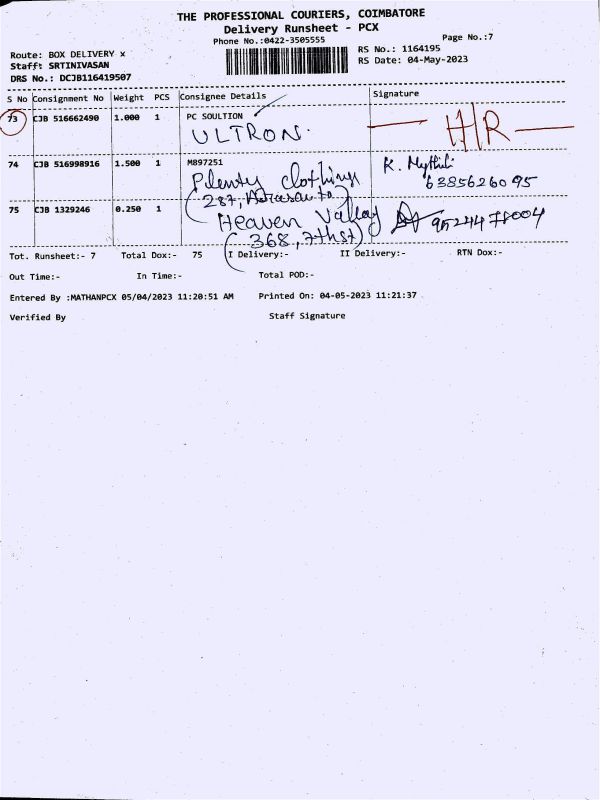 THE PROFESSIONAL COURIERS, COIMBATORE
Delivery Runsheet - PCX
Phone No.:0422-3505555
Page No.:7
Route: BOX DELIVERY x
Staff: SRTINIVASAN
DRS No.: DCJB116419507
RS No.: 1164195
RS Date: 04-May-2023
S No Consignment No Weight PCS Consignee Details Signature
73 CJB 516662490 1.000 1 PC SOULTION
ULTRON.
74 CJB 516998916 1.500 1 M897251
Plenty Clothings K. Mythili
(287, 6385626095
75 CJB 1329246 0.250 1 Heaven Valley
(368, 7th st)
Tot. Runsheet:- 7 Total Dox:- 75 I Delivery:- II Delivery:- RTN Dox:-
Out Time:- In Time:- Total POD:-
Entered By :MATHANPCX 05/04/2023 11:20:51 AM Printed On: 04-05-2023 11:21:37
Verified By Staff Signature